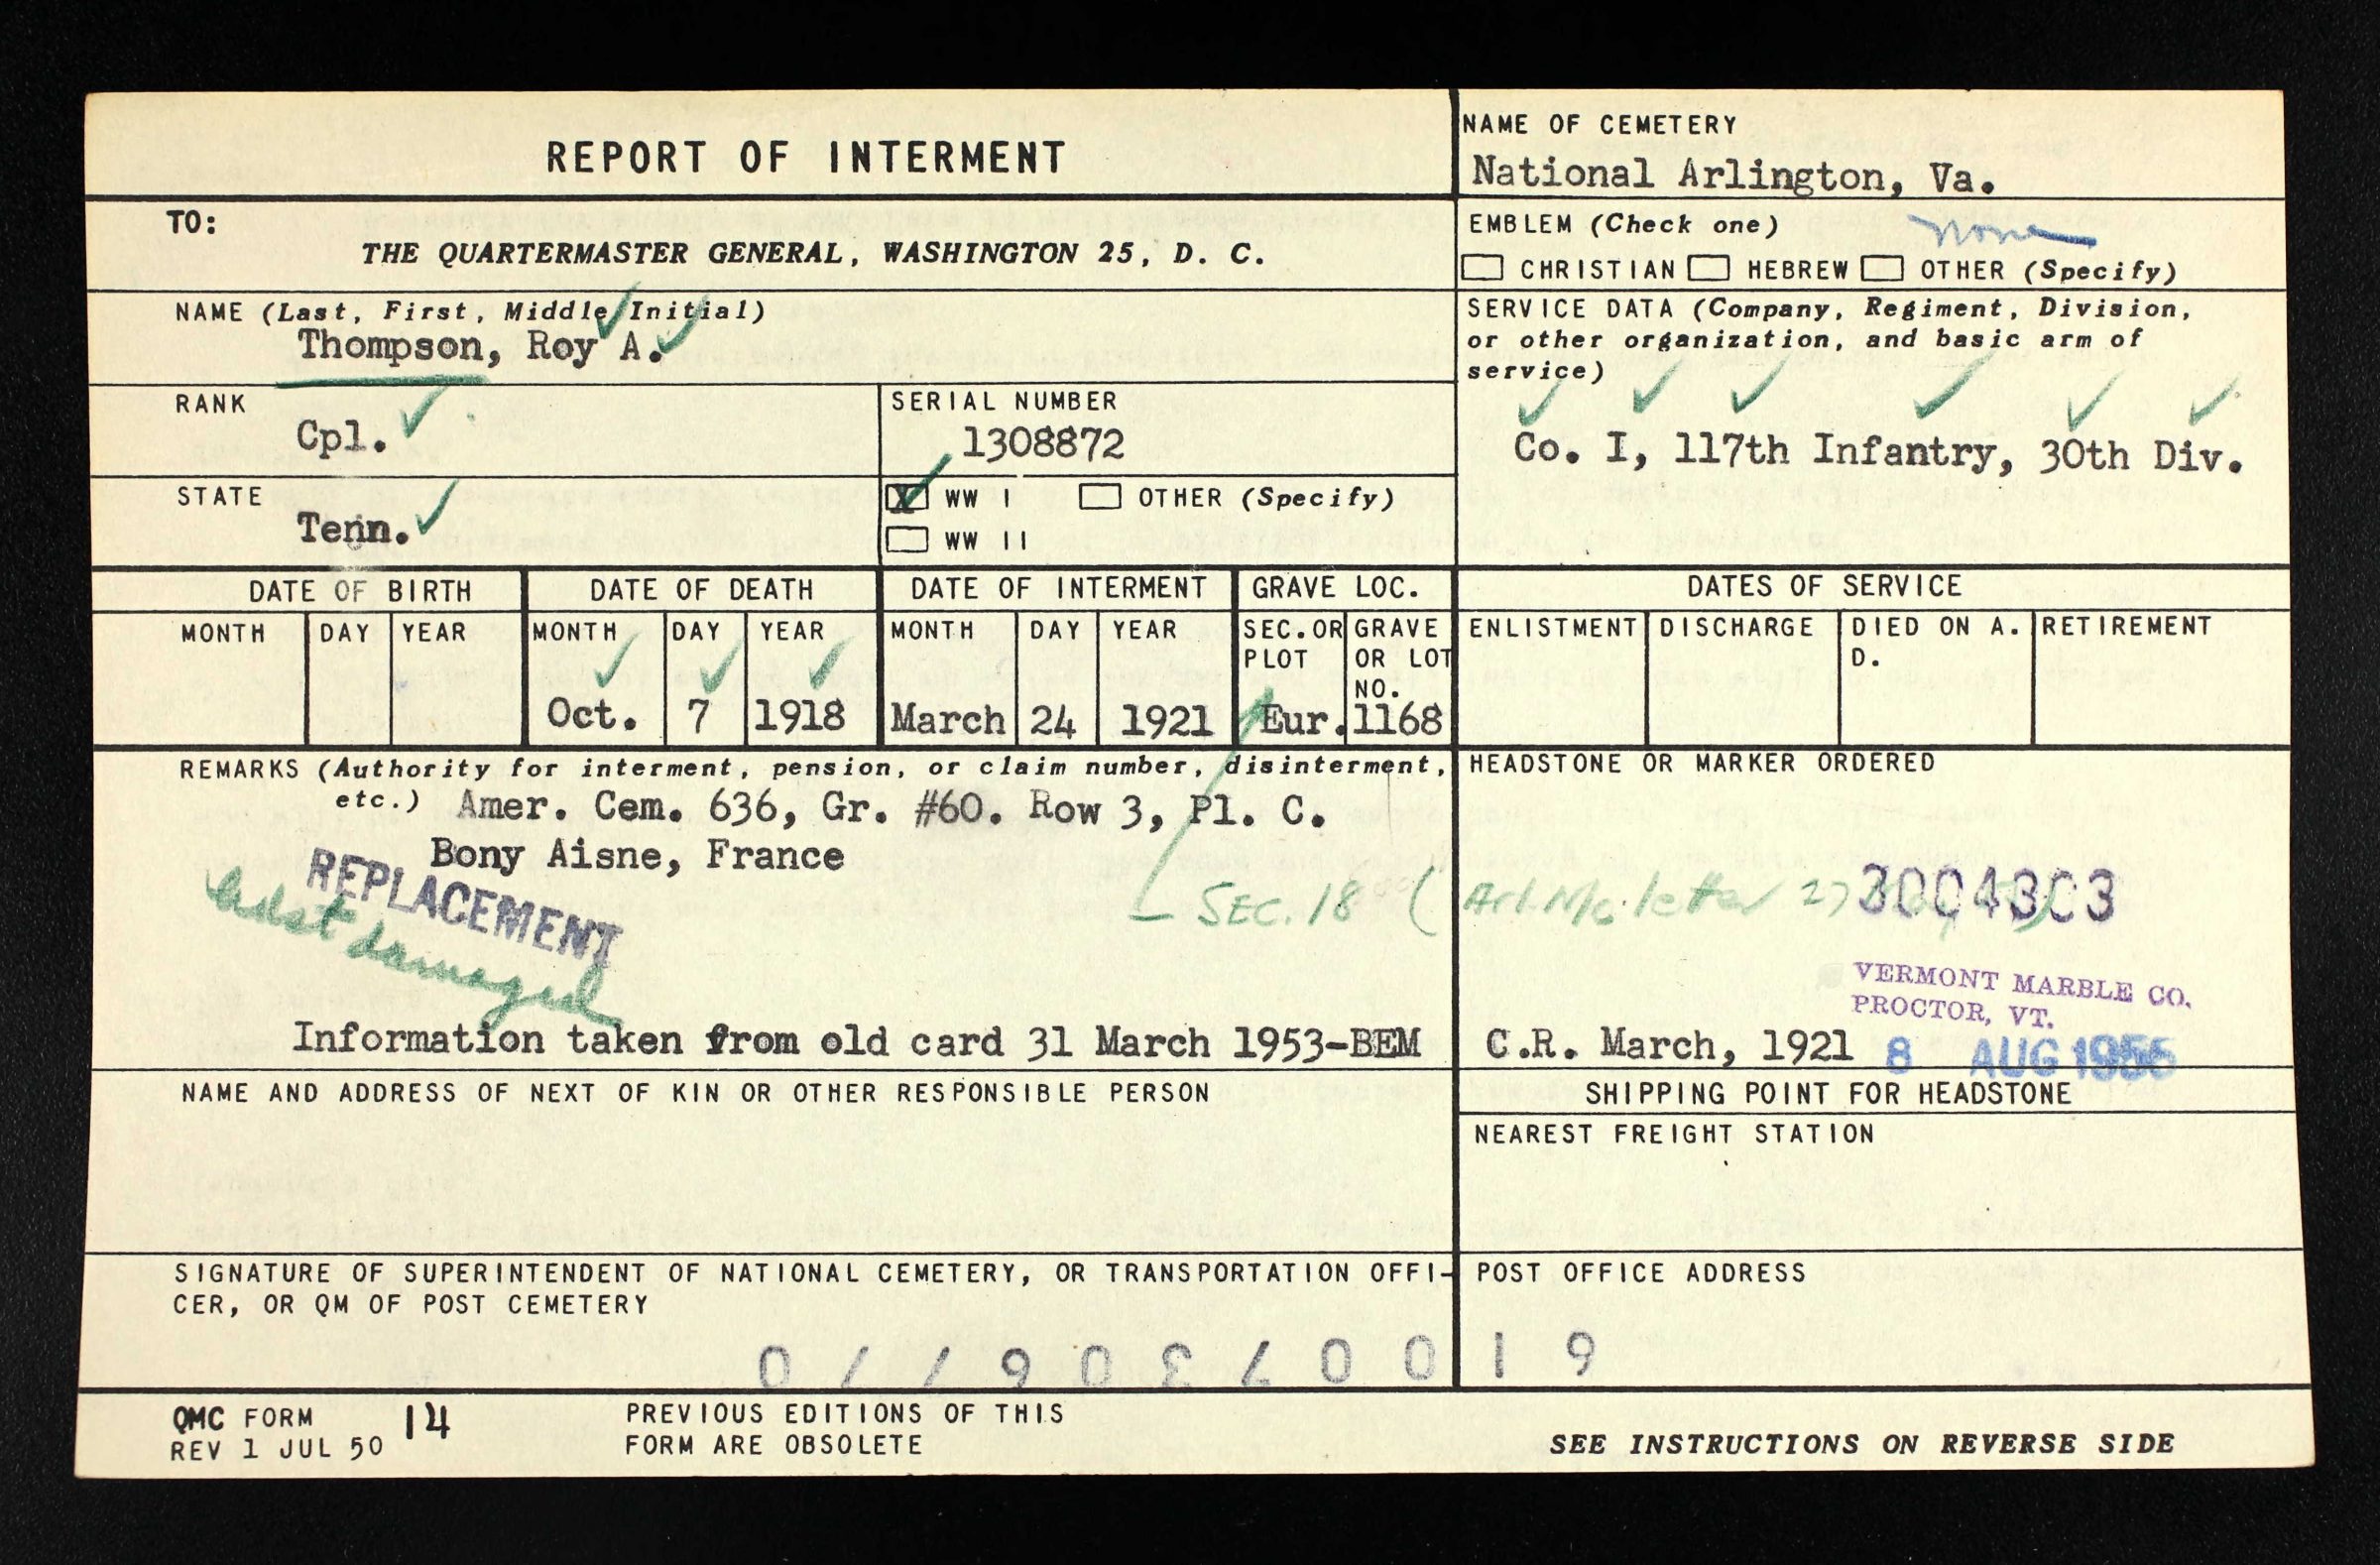 REPORT OF INTERMENT
NAME OF CEMETERY
National Arlington, Va.
TO:
THE QUARTERMASTER GENERAL, WASHINGTON 25, D. C.
EMBLEM (Check one)
none
CHRISTIAN HEBREW OTHER (Specify)
NAME (Last, First, Middle Initial)
Thompson, Roy A.
SERVICE DATA (Company, Regiment, Division,
or other organization, and basic arm of
service)
Co. I, 117th Infantry, 30th Div.
RANK
Cpl.
SERIAL NUMBER
1308872
STATE
Tenn.
X WW I OTHER (Specify)
WW II
DATE OF BIRTH DATE OF DEATH DATE OF INTERMENT GRAVE LOC. DATES OF SERVICE
MONTH DAY YEAR MONTH DAY YEAR MONTH DAY YEAR
SEC. OR PLOT
GRAVE OR LOT NO.
ENLISTMENT DISCHARGE DIED ON A. D. RETIREMENT
Oct. 7 1918 March 24 1921 Eur. 1168
REMARKS (Authority for interment, pension, or claim number, disinterment,
etc.) Amer. Cem. 636, Gr. #60. Row 3, Pl. C.
Bony Aisne, France
REPLACEMENT
damaged
SEC. 18 ( letter
Information taken from old card 31 March 1953-BEM
HEADSTONE OR MARKER ORDERED
3004303
VERMONT MARBLE CO.
PROCTOR, VT.
C.R. March, 1921 8 AUG 1955
NAME AND ADDRESS OF NEXT OF KIN OR OTHER RESPONSIBLE PERSON
SHIPPING POINT FOR HEADSTONE
NEAREST FREIGHT STATION
SIGNATURE OF SUPERINTENDENT OF NATIONAL CEMETERY, OR TRANSPORTATION OFFI-
CER, OR QM OF POST CEMETERY
POST OFFICE ADDRESS
QMC FORM 14
REV 1 JUL 50
PREVIOUS EDITIONS OF THIS
FORM ARE OBSOLETE
SEE INSTRUCTIONS ON REVERSE SIDE